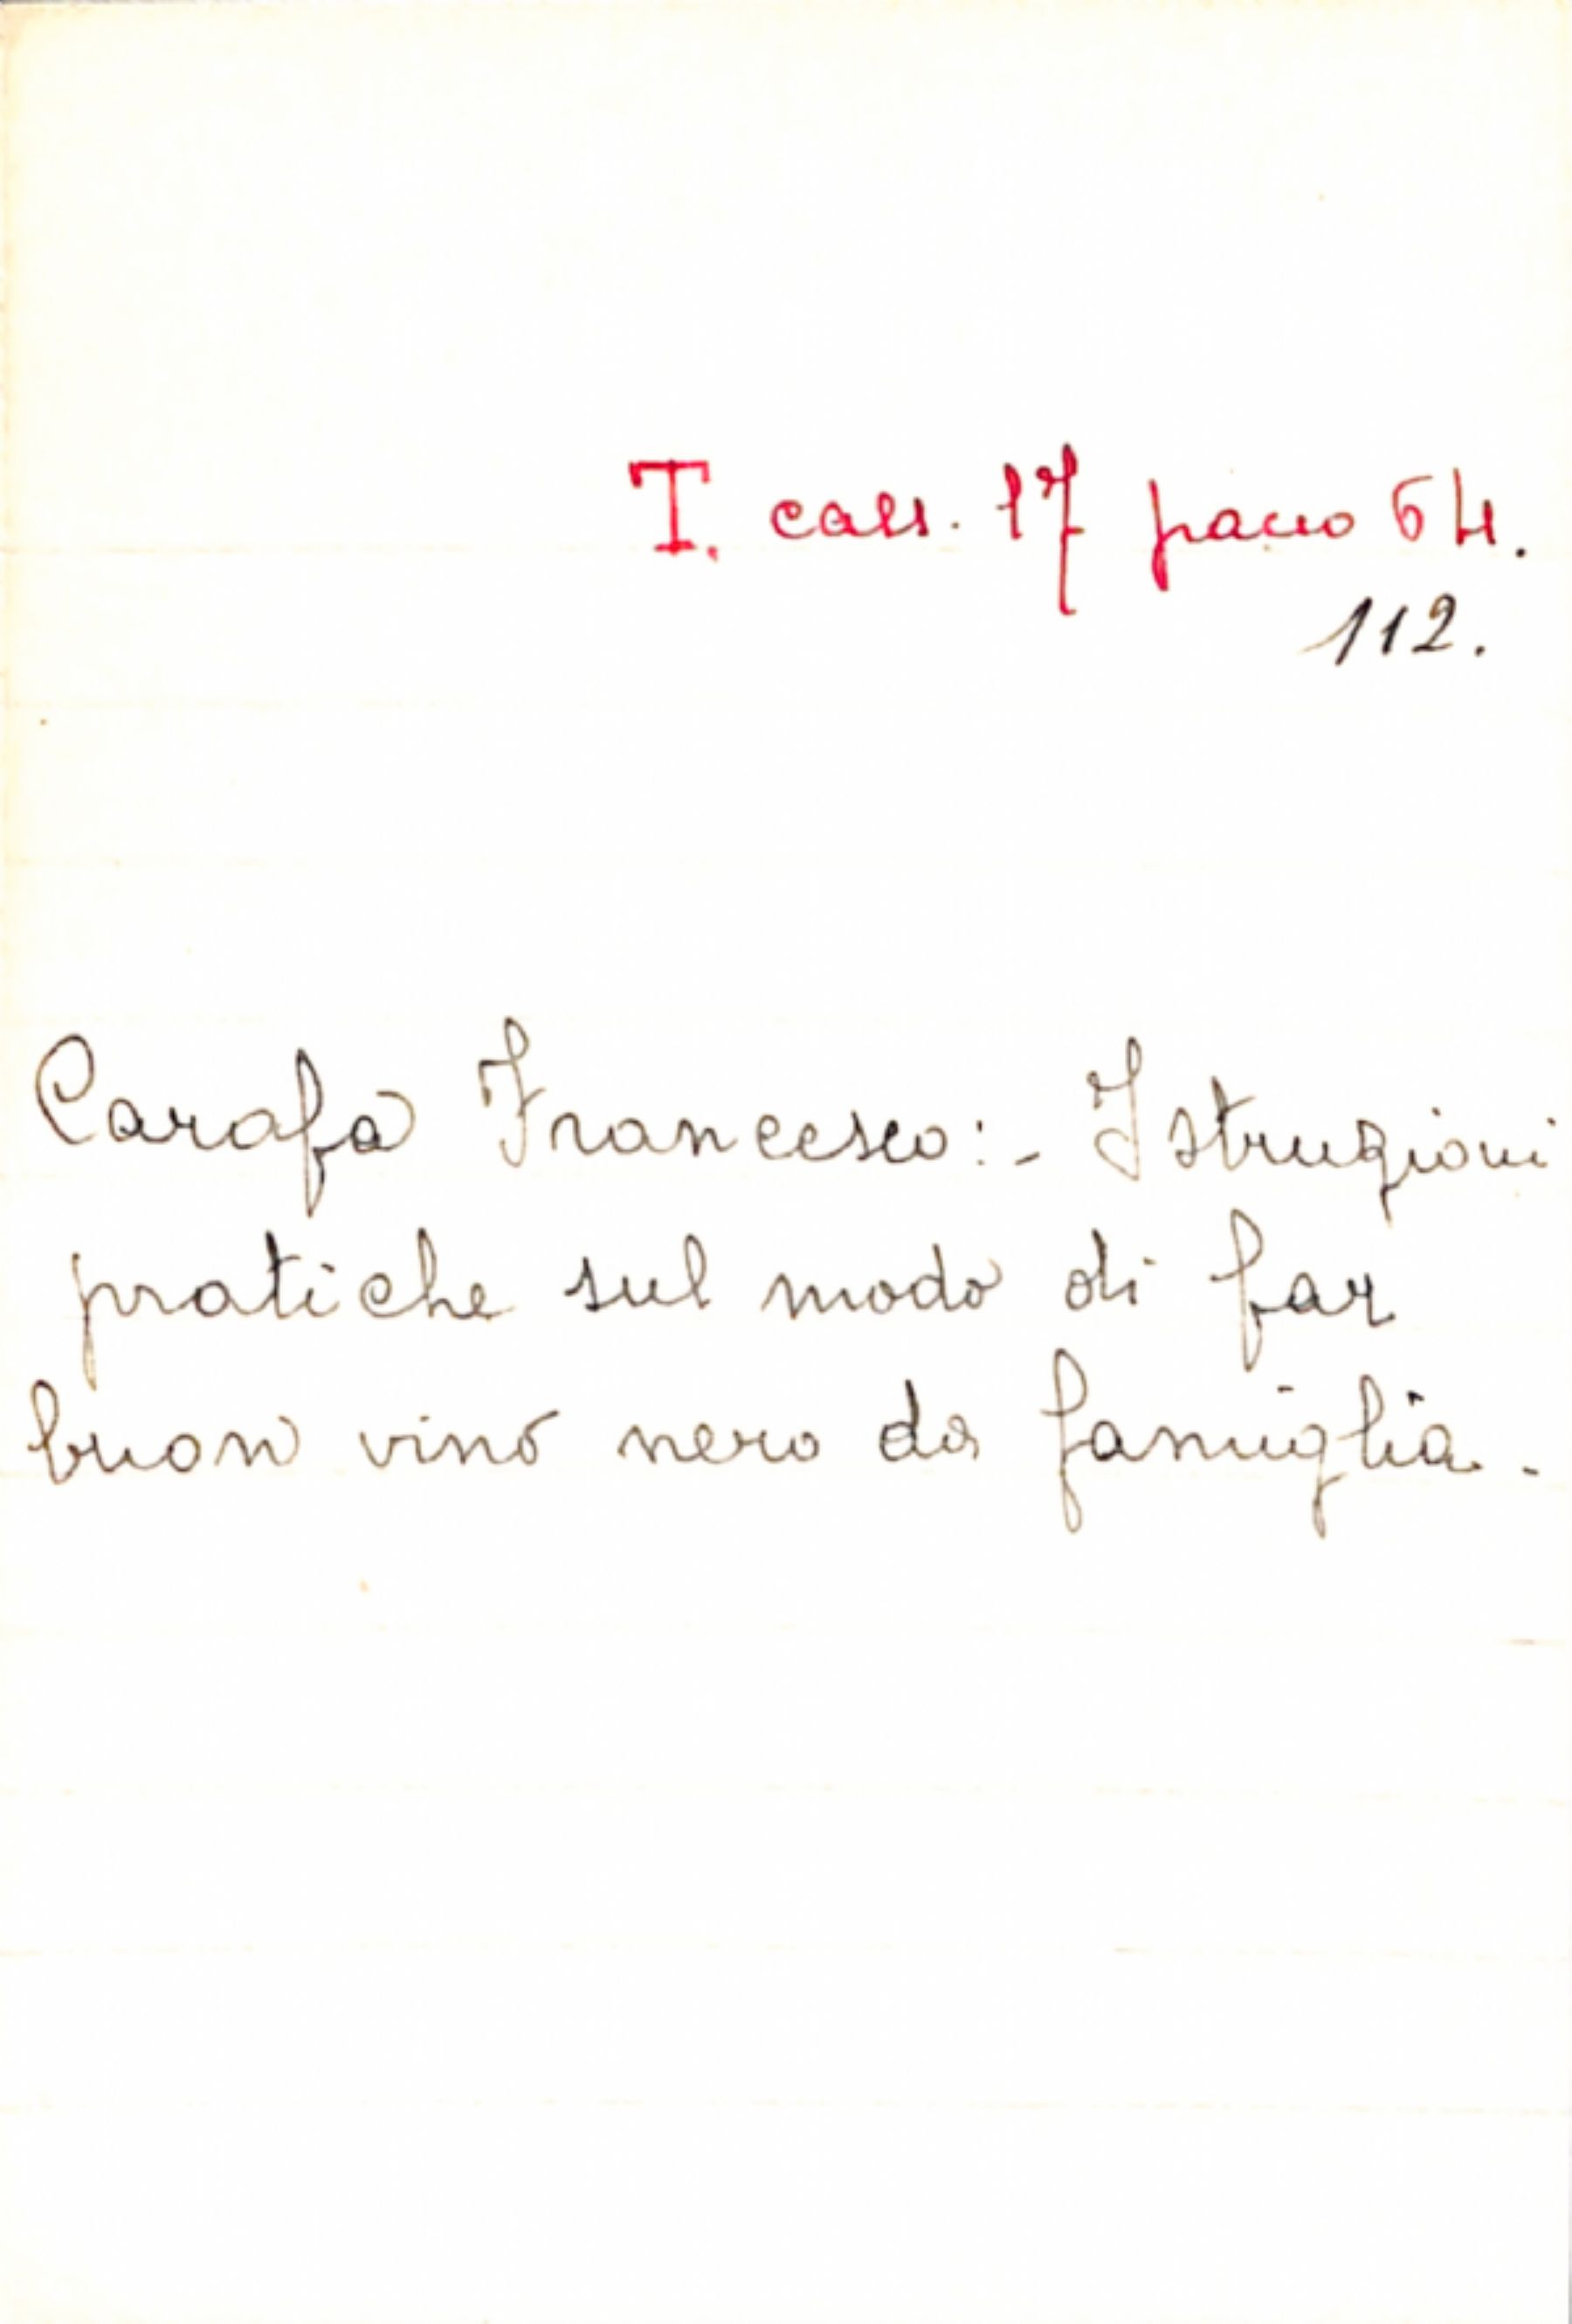 T. cass. 17 pacco 64.
112.
Carafa Francesco:- Istruzioni
pratiche sul modo di far
buon vino nero da famiglia.